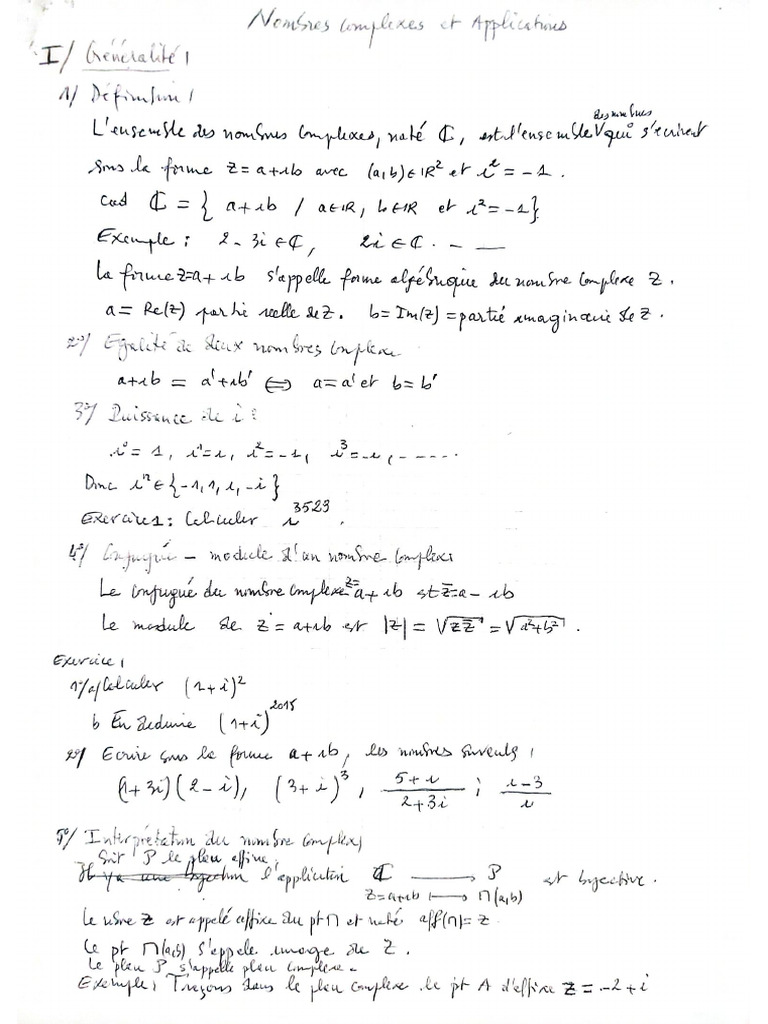 Nombres complexes et Applications
I/ Généralité :
1/ Définition :
L'ensemble des nombres complexes, noté ℂ, est l'ensemble des nombres qui s'écrivent
sous la forme z = a+ib avec (a,b)∈ℝ² et i² = -1.
cad ℂ = { a+ib / a∈ℝ, b∈ℝ et i²=-1}
Exemple : 2-3i∈ℂ, 2i∈ℂ . - —
La forme z=a+ib s'appelle forme algébrique du nombre complexe z.
a = Re(z) partie reelle de z. b = Im(z) = partie imaginaire de z.
2°/ Egalité de deux nombres complexe
a+ib = a'+ib' ⟺ a=a' et b=b'
3°/ Puissance de i :
i⁰ = 1, i¹=i, i² = -1, i³ = -i, -----
Donc iⁿ ∈ {-1, 1, i, -i}
Exercice 1 : Calculer i³⁵²³.
4°/ Conjugué – module d'un nombre complexe
Le conjugué du nombre complexe z=a+ib st z̄=a-ib
Le module de z = a+ib est |z| = √(zz̄) = √(a²+b²).
Exercice :
1°/a/ Calculer (1+i)²
b En deduire (1+i)²⁰¹⁵
2°/ Ecrire sous la forme a+ib, les nombres suivants :
(1+3i)(2-i), (3+i)³, (5+i)/(2+3i) ; (i-3)/i
5°/ Interprétation du nombre complexe
Soit P le plan affine,
l'application ℂ ⟶ P est bijective.
z=a+ib ⟼ M(a,b)
Le nbre z est appelé affixe du pt M et noté aff(M)= z
Le pt M(a,b) s'appele image de z.
Le plan P s'appelle plan complexe.
Exemple : Traçons dans le plan complexe le pt A d'affixe z = -2+i